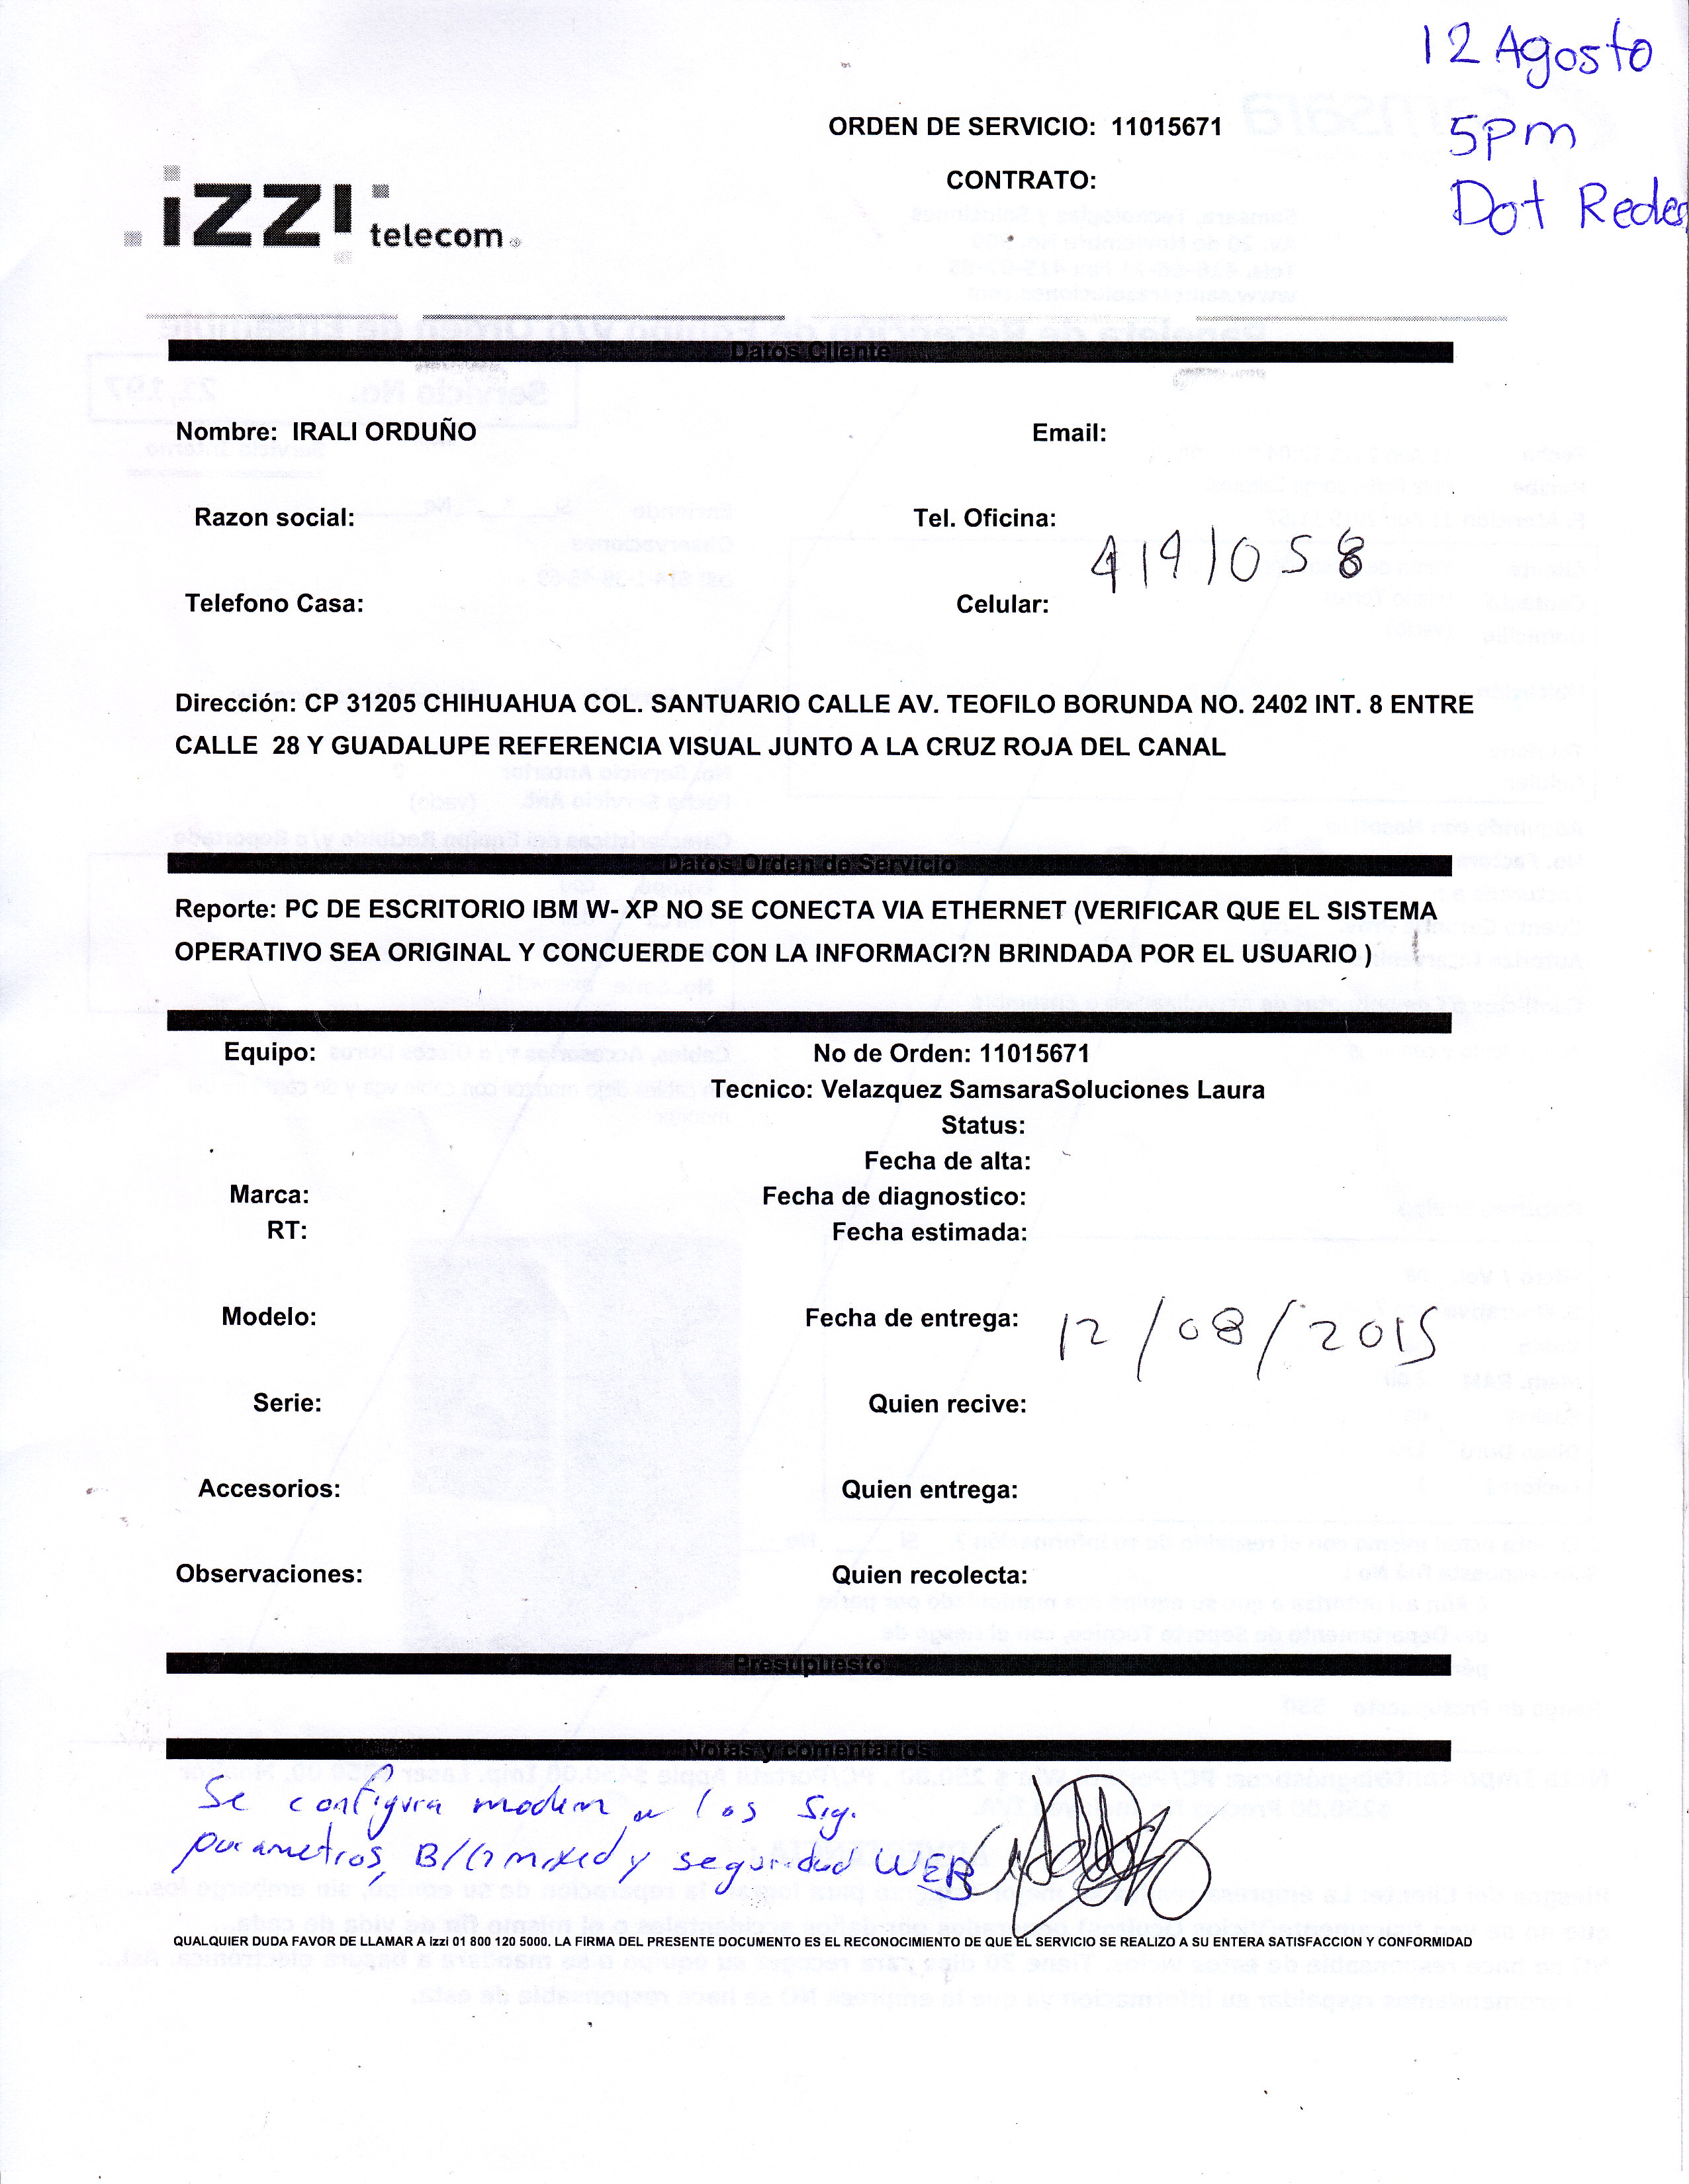 12 Agosto
5pm
Dot Redes
ORDEN DE SERVICIO: 11015671
CONTRATO:
izzi telecom
Datos Cliente
Nombre: IRALI ORDUÑO
Email:
Razon social:
Tel. Oficina:
4191058
Telefono Casa:
Celular:
Dirección: CP 31205 CHIHUAHUA COL. SANTUARIO CALLE AV. TEOFILO BORUNDA NO. 2402 INT. 8 ENTRE
CALLE 28 Y GUADALUPE REFERENCIA VISUAL JUNTO A LA CRUZ ROJA DEL CANAL
Datos Orden de Servicio
Reporte: PC DE ESCRITORIO IBM W- XP NO SE CONECTA VIA ETHERNET (VERIFICAR QUE EL SISTEMA
OPERATIVO SEA ORIGINAL Y CONCUERDE CON LA INFORMACI?N BRINDADA POR EL USUARIO )
Equipo:
No de Orden: 11015671
Tecnico: Velazquez SamsaraSoluciones Laura
Status:
Fecha de alta:
Marca:
Fecha de diagnostico:
RT:
Fecha estimada:
Modelo:
Fecha de entrega: 12/08/2015
Serie:
Quien recive:
Accesorios:
Quien entrega:
Observaciones:
Quien recolecta:
Presupuesto
Notas y comentarios
Se configura modem los Sig.
parametros, B/G mixed y seguridad WEB
QUALQUIER DUDA FAVOR DE LLAMAR A izzi 01 800 120 5000. LA FIRMA DEL PRESENTE DOCUMENTO ES EL RECONOCIMIENTO DE QUE EL SERVICIO SE REALIZO A SU ENTERA SATISFACCION Y CONFORMIDAD